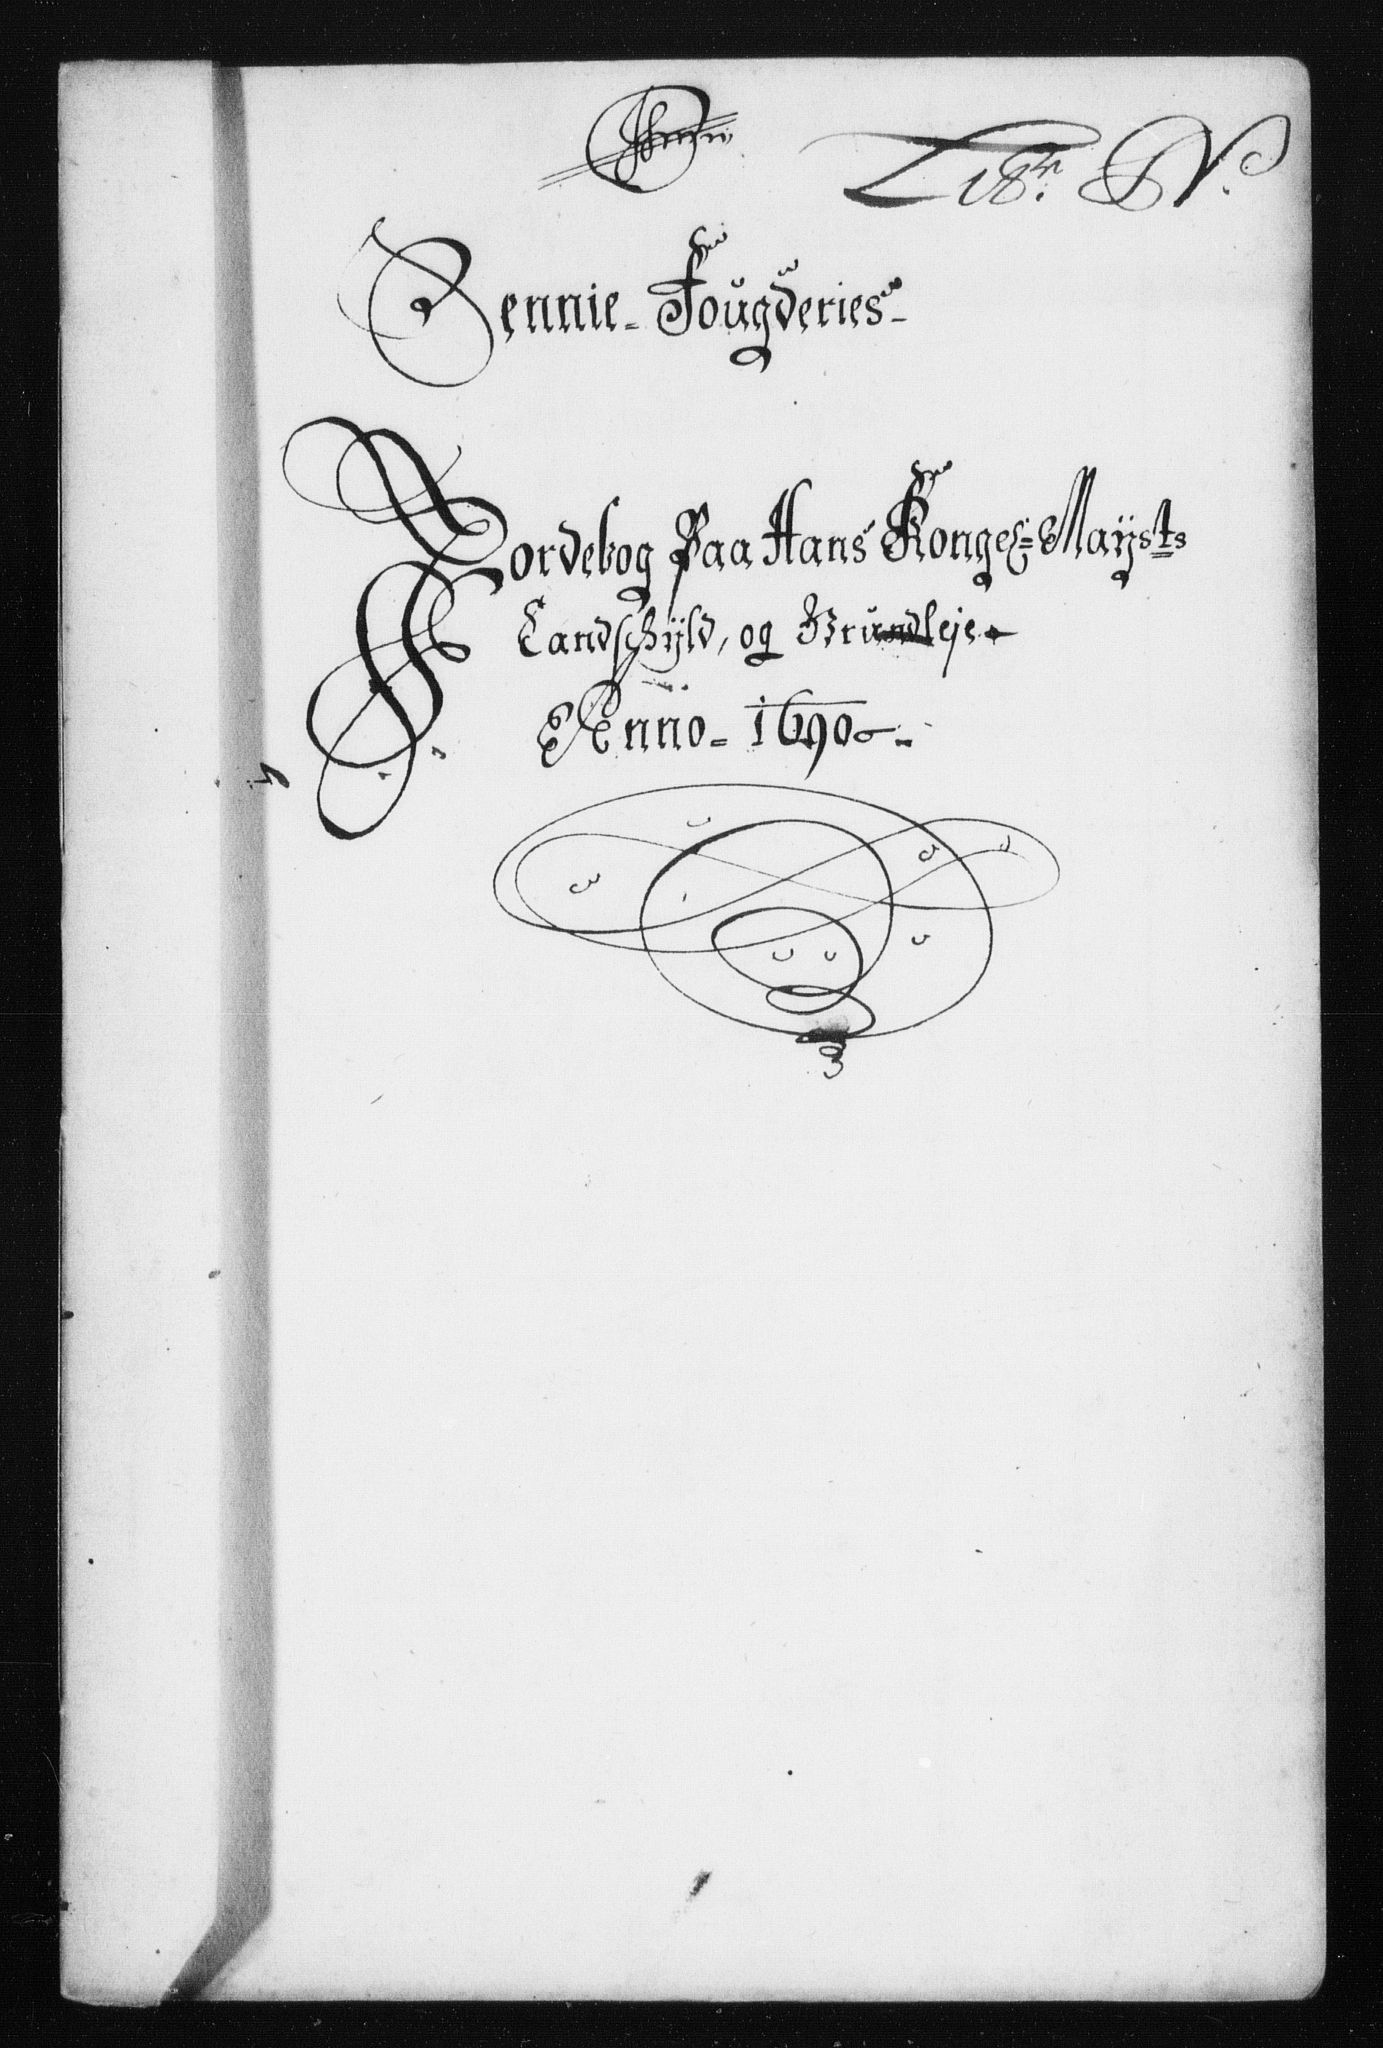 Litr. N.
Hennie Fougderies
Jordebog Paa Hans Konge: Maÿsts
Landschÿld, og Grundleje
Anno 1690